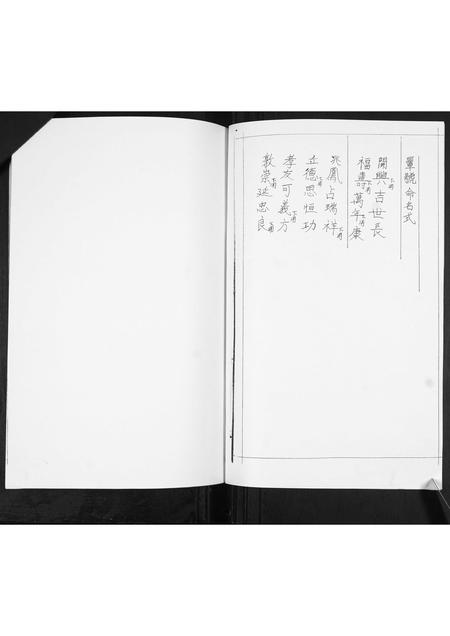 輩號命名式
開興吉世長
福壽萬年康
兆鳳占瑞祥
立德思恒功
孝友可義方
敦崇延忠良